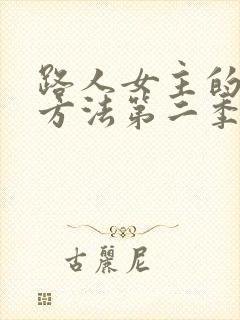 路人女主的
方法第二季
古丽尼